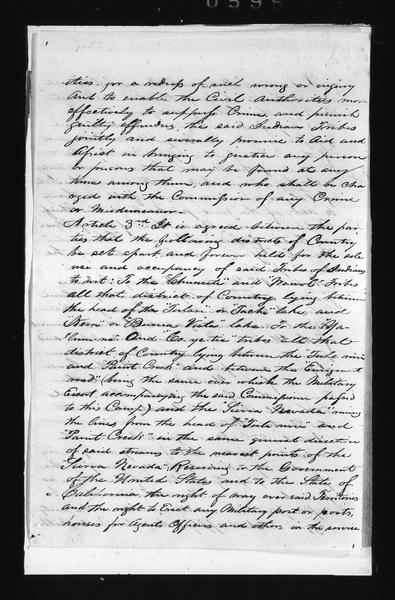 0595
ities for a redress of such wrong or injury
And to enable the Civil Authorities more
effectively to suppress Crime, and punish
guilty offenders, the said Indian Tribes
jointly and severally promise to Aid and
Assist in bringing to justice any person
or persons that may be found at any
time among them, and who shall be cha
rged with the Commission of any Crime
or Misdemeanor.
Article 3rd It is agreed between the par
ties that the following districts of Country
be set apart and forever held for the sole
use and occupancy of said Tribes of Indians
to wit: To the "Chunute" and "Wowol" Tribes
all that district of Country lying between
the head of the "Tulare" or Tache lake, and
Kern or "Buena Vista" lake. To the "Ya
lum-ne" And "Co-ye-tie" tribes all that
district of Country lying between the Tule river
and "Paint Creek" and between the Emigrant
road (being the same over which the Military
Escort accompanying the said Commissioner passed
to this Camp) and the "Sierra Nevada", running
the lines from the head of "Tule river" and
"Paint Creek" in the same general direction
of said streams to the nearest points of the
Sierra Nevada; Reserving to the Government
of the United States and to the State of
California the right of way over said Territories
and the right to Erect any Military post or posts,
houses for Agents Officers and others in the service